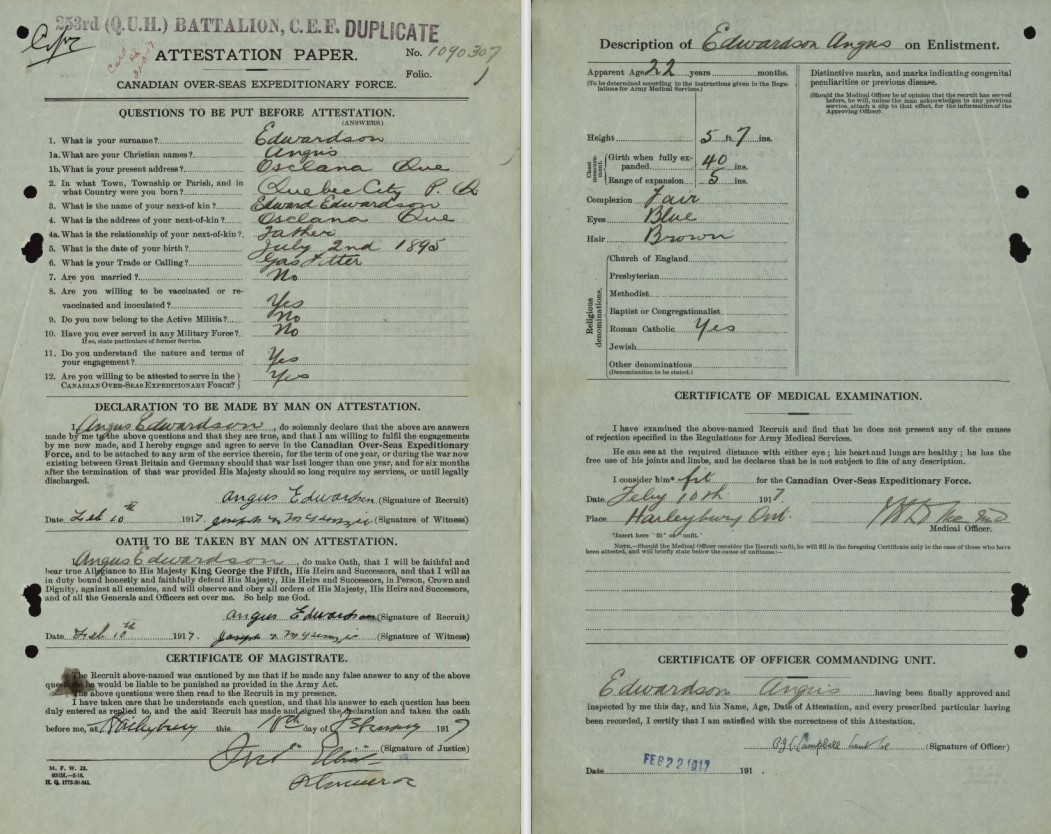 253rd (Q.U.H.) BATTALION, C.E.F. DUPLICATE
Copy
ATTESTATION PAPER.
No. 1090307
Folio.
CANADIAN OVER-SEAS EXPEDITIONARY FORCE.
QUESTIONS TO BE PUT BEFORE ATTESTATION.
(ANSWERS)
1. What is your surname? Edwardson
1a. What are your Christian names? Angus
1b. What is your present address? Osclana Que
2. In what Town, Township or Parish, and in what Country were you born? Quebec City P. Q
3. What is the name of your next-of kin? Edward Edwardson
4. What is the address of your next-of-kin? Osclana Que
4a. What is the relationship of your next-of-kin? Father
5. What is the date of your birth? July 2nd 1895
6. What is your Trade or Calling? Gas Fitter
7. Are you married? No
8. Are you willing to be vaccinated or re-
vaccinated and inoculated? Yes
9. Do you now belong to the Active Militia? No
10. Have you ever served in any Military Force? No
If so, state particulars of former Service.
11. Do you understand the nature and terms of
your engagement? Yes
12. Are you willing to be attested to serve in the
CANADIAN OVER-SEAS EXPEDITIONARY FORCE? Yes
DECLARATION TO BE MADE BY MAN ON ATTESTATION.
I, Angus Edwardson, do solemnly declare that the above are answers
made by me to the above questions and that they are true, and that I am willing to fulfil the engagements
by me now made, and I hereby engage and agree to serve in the Canadian Over-Seas Expeditionary
Force, and to be attached to any arm of the service therein, for the term of one year, or during the war now
existing between Great Britain and Germany should that war last longer than one year, and for six months
after the termination of that war provided His Majesty should so long require my services, or until legally
discharged.
Angus Edwardson (Signature of Recruit)
Date Feb 10th 1917. (Signature of Witness)
OATH TO BE TAKEN BY MAN ON ATTESTATION.
I, Angus Edwardson, do make Oath, that I will be faithful and
bear true Allegiance to His Majesty King George the Fifth, His Heirs and Successors, and that I will as
in duty bound honestly and faithfully defend His Majesty, His Heirs and Successors, in Person, Crown and
Dignity, against all enemies, and will observe and obey all orders of His Majesty, His Heirs and Successors,
and of all the Generals and Officers set over me. So help me God.
Angus Edwardson (Signature of Recruit)
Date Feb 10th 1917. (Signature of Witness)
CERTIFICATE OF MAGISTRATE.
The Recruit above-named was cautioned by me that if he made any false answer to any of the above
questions he would be liable to be punished as provided in the Army Act.
The above questions were then read to the Recruit in my presence.
I have taken care that he understands each question, and that his answer to each question has been
duly entered as replied to, and the said Recruit has made and signed the declaration and taken the oath
before me, at Haileybury this 10th day of February 1917
(Signature of Justice)
M. F. W. 23.
600M.—2-16.
H. Q. 1772-39-841.
Description of Edwardson Angus on Enlistment.
Apparent Age 22 years months.
(To be determined according to the instructions given in the Regu-
lations for Army Medical Services.)
Distinctive marks, and marks indicating congenital
peculiarities or previous disease.
(Should the Medical Officer be of opinion that the recruit has served
before, he will, unless the man acknowledges to any previous
service, attach a slip to that effect, for the information of the
Approving Officer).
Height 5 ft. 7 ins.
Chest measurement.
Girth when fully ex-
panded 40 ins.
Range of expansion 5 ins.
Complexion Fair
Eyes Blue
Hair Brown
Religious denominations.
Church of England
Presbyterian
Methodist
Baptist or Congregationalist
Roman Catholic Yes
Jewish
Other denominations
(Denomination to be stated.)
CERTIFICATE OF MEDICAL EXAMINATION.
I have examined the above-named Recruit and find that he does not present any of the causes
of rejection specified in the Regulations for Army Medical Services.
He can see at the required distance with either eye; his heart and lungs are healthy; he has the
free use of his joints and limbs, and he declares that he is not subject to fits of any description.
I consider him* fit for the Canadian Over-Seas Expeditionary Force.
Date Feby 10th 1917.
Place Haileybury Ont.
Medical Officer.
*Insert here "fit" or "unfit."
NOTE.—Should the Medical Officer consider the Recruit unfit, he will fill in the foregoing Certificate only in the case of those who have
been attested, and will briefly state below the cause of unfitness:—
CERTIFICATE OF OFFICER COMMANDING UNIT.
Edwardson Angus having been finally approved and
inspected by me this day, and his Name, Age, Date of Attestation, and every prescribed particular having
been recorded, I certify that I am satisfied with the correctness of this Attestation.
P.G.C. Campbell (Signature of Officer)
Date FEB 22 1917 191 .